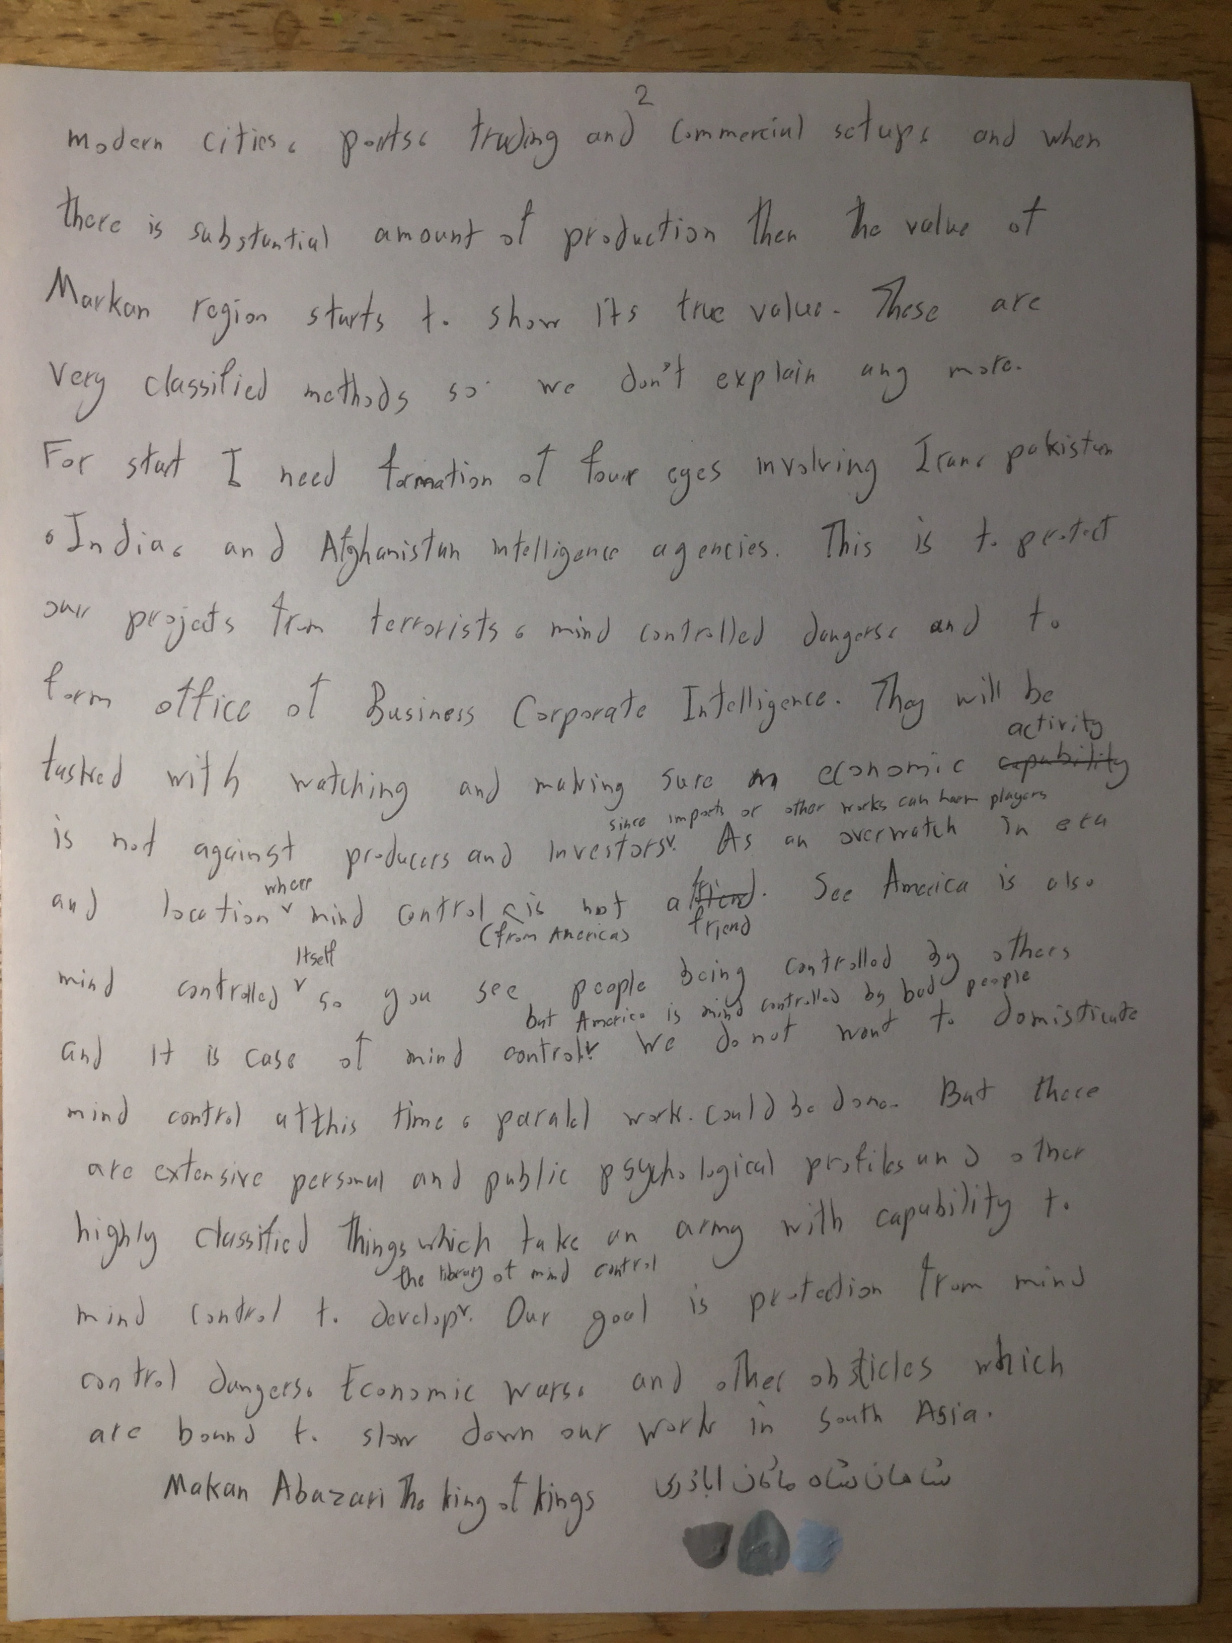 2
modern cities، ports، trading and commercial setups، and when
there is substantial amount of production then the value of
Markan region starts to show its true value. These are
very classified methods so we don't explain any more.
For start I need formation of four eyes involving Iran، pakistan
، India، and Afghanistan intelligence agencies. This is to protect
our projects from terrorists، mind controlled dangers، and to
form office of Business Corporate Intelligence. They will be
activity
tasked with watching and making sure economic capability
since imports or other works can harm players
is not against producers and investors. As an overwatch in era
where
and location mind control is not a friend. See America is also
(from America) friend
itself
mind controlled so you see people being controlled by others
but America is mind controlled by bad people
and it is case of mind control. We do not want to domisticate
mind control at this time، paralel work could be done. But there
are extensive personal and public psychological profiles and other
highly classified things which take an army with capability to
the library of mind control
mind control to develop. Our goal is protection from mind
control dangers، Economic wars، and other obsticles which
are bound to slow down our work in South Asia.
Makan Abazari The king of kings شاهان شاه ماکان اباذری